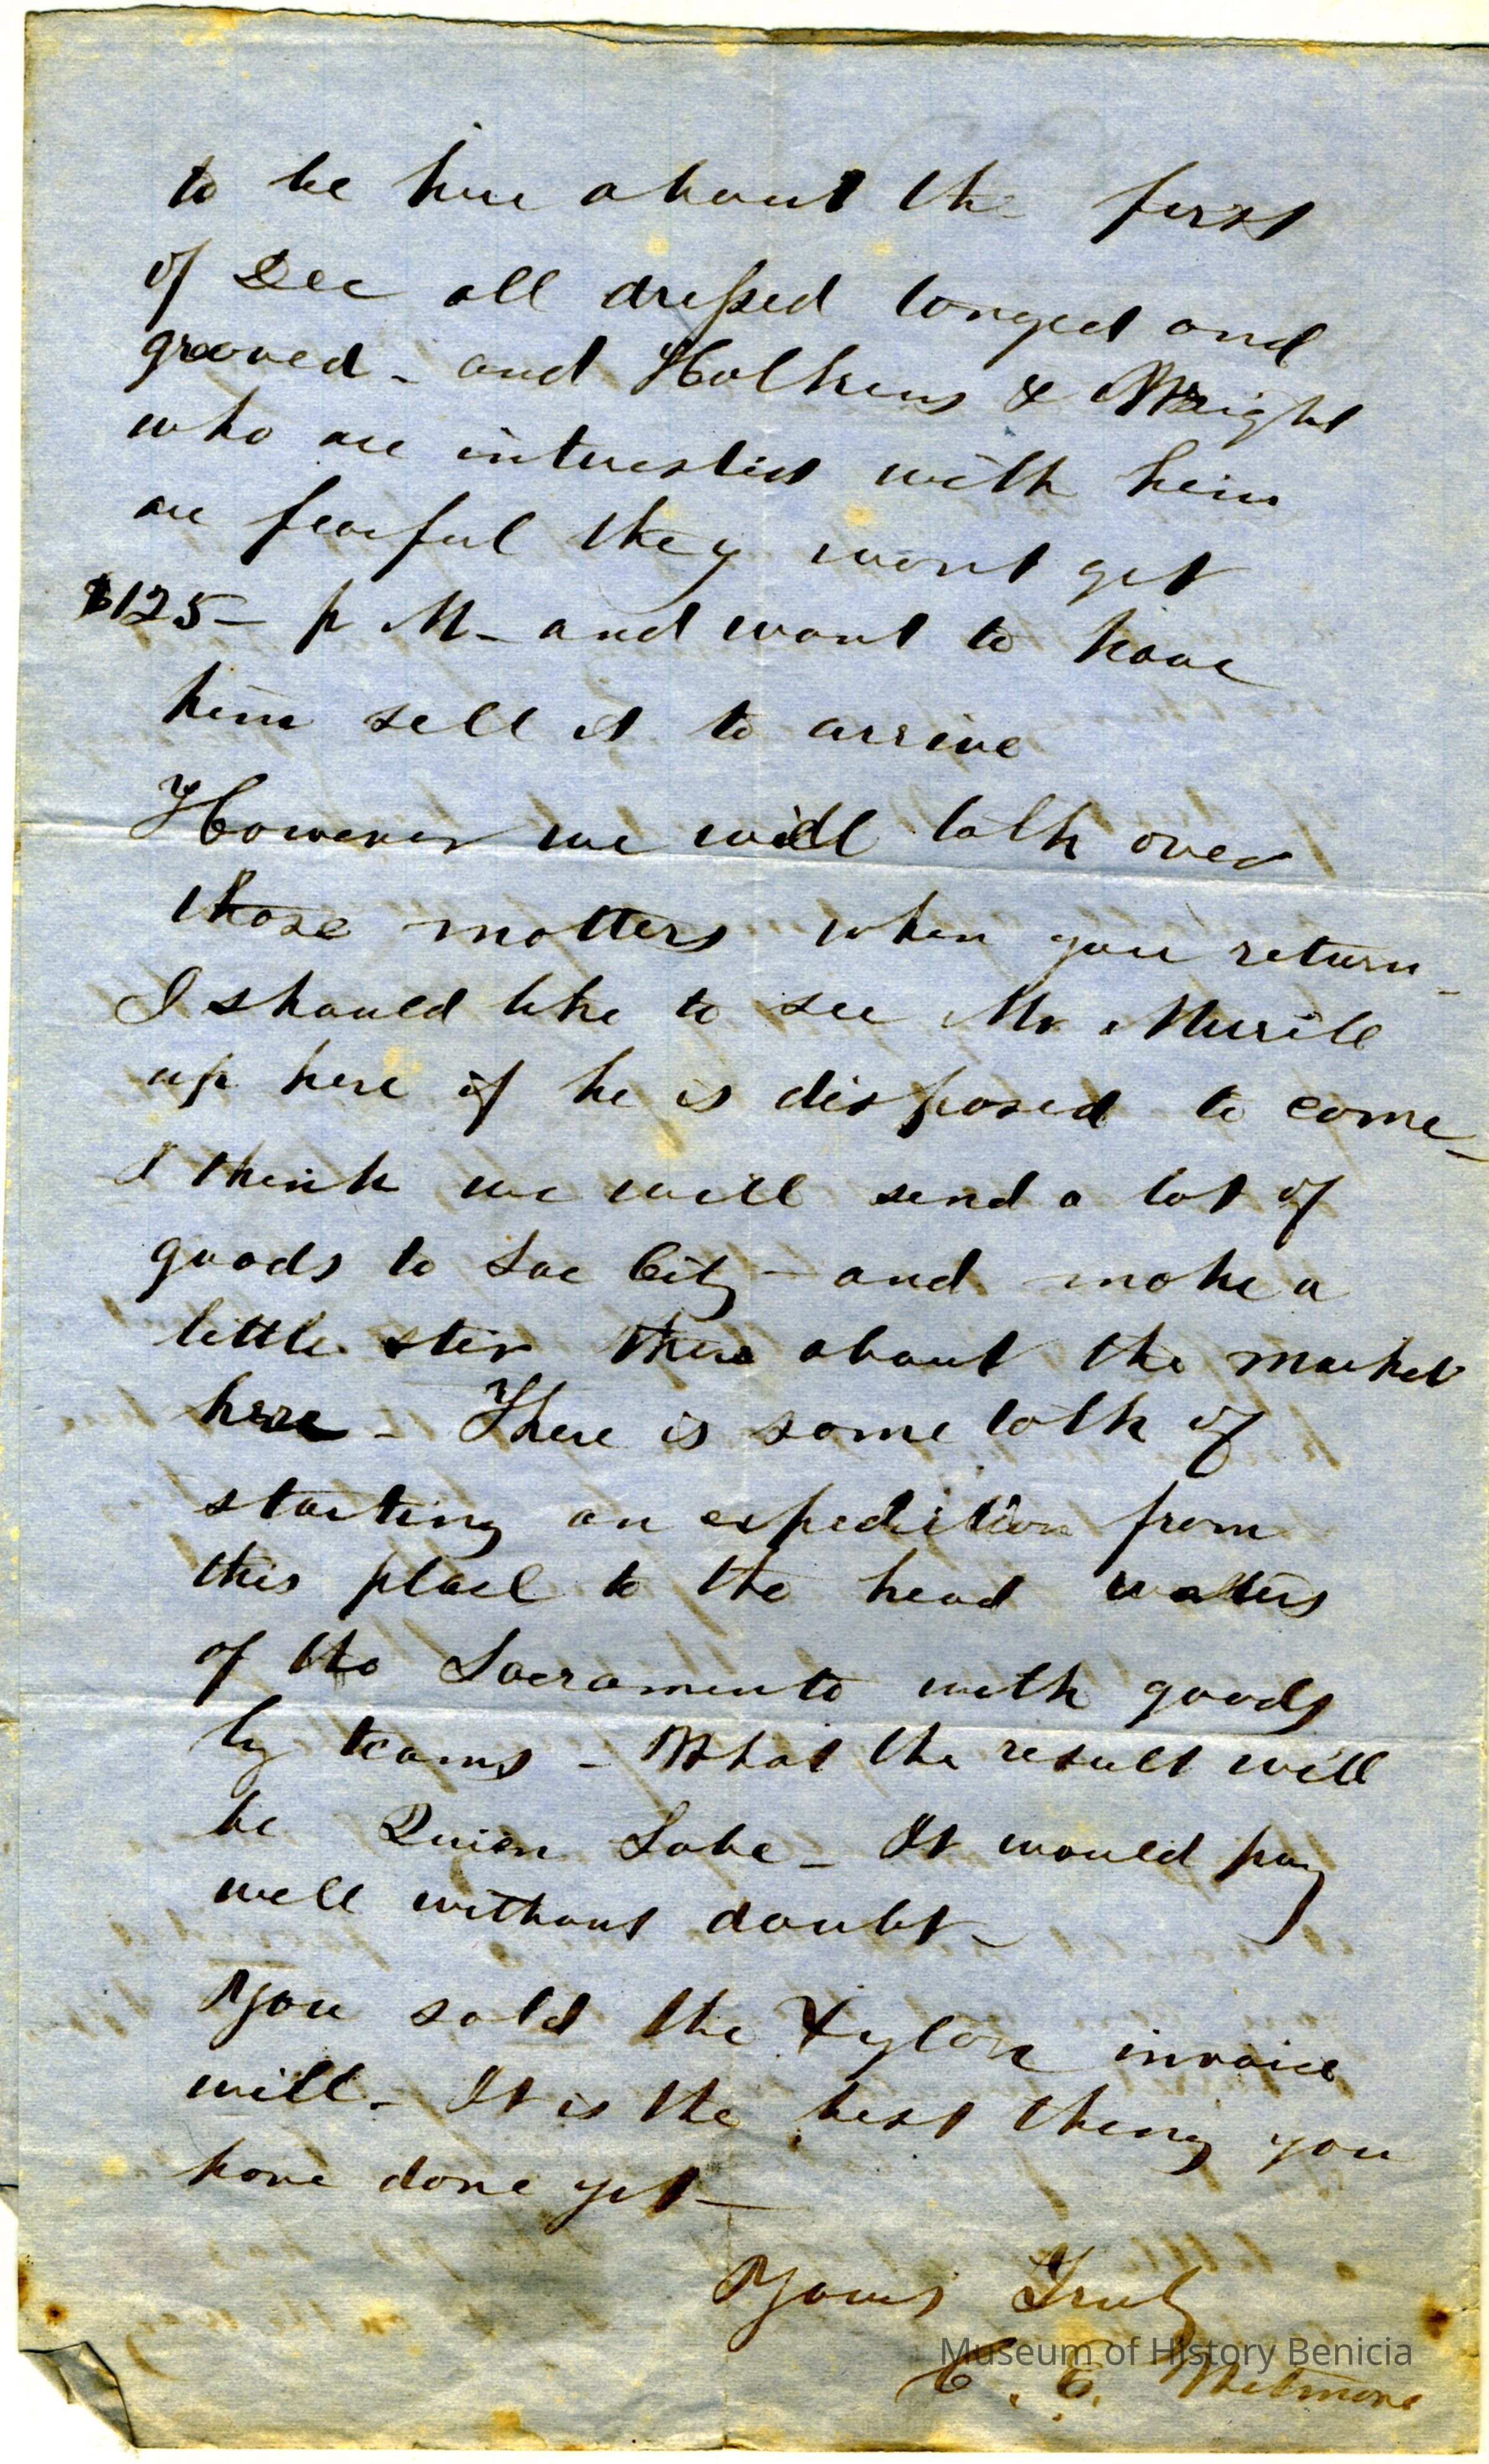 to be here about the first
of Dec all dressed tonged and
grooved - and Holkins & Wright
who are interested with him
are fearful they wont get
$125 - p M - and want to have
him sell it to arrive
However we will talk over
those matters when you return -
I should like to see Mr Merrill
up here if he is disposed to come -
I think we will send a lot of
goods to Sac City - and make a
little stir there about the market
here - There is some talk of
starting an expedition from
this place to the head waters
of the Sacramento with goods
by teams - What the result will
be Quien Sabe - It would pay
well without doubt -
You sold the Xylon invoice
will - It is the best thing you
have done yet -
Yours Truly
C. E. Wetmore
Museum of History Benicia